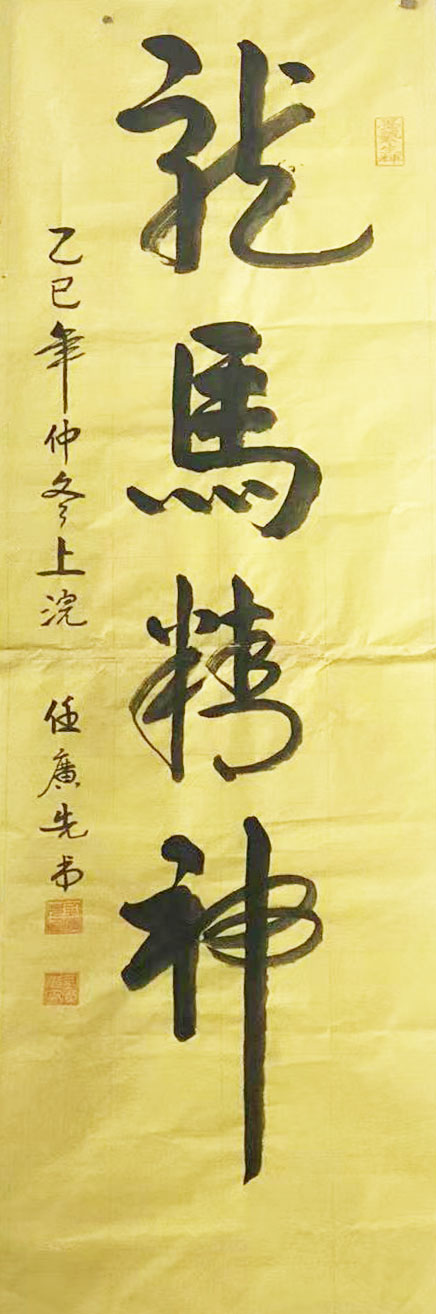 龍馬精神
乙巳年仲冬上浣 任廣先书